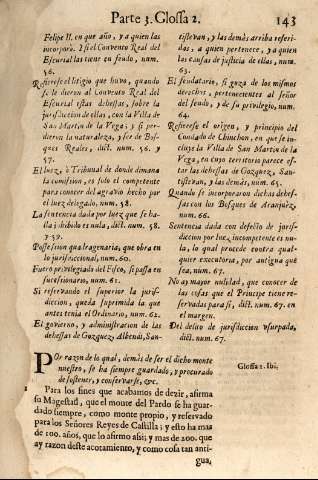 Parte 3. Glossa 2. 143
Felipe II. en que año, y a quien las
incorporò. I si el Convento Real del
Escurial las tiene en feudo, num.
56.
Refierese el litigio que huvo, quando
se le dieron al Convento Real del
Escurial estas dehessas, sobre la
jurisdiccion de ellas, con la Villa de
San Martin de la Vega; i si per-
dieron la naturaleza, y sèr de Bos-
ques Reales, dict. num. 56. y
57.
El Iuez, ò Tribunal de donde dimana
la comission, es solo el competente
para conocer del agravio hecho por
el Iuez delegado, num. 58.
La sentencia dada por Iuez que se ha-
llò inhibido es nula, dict. num. 58.
y 59.
Possession quadragenaria, que obra en
lo jurisdiccional, num. 60.
Fuero privilegiado del Fisco, si passa en
sucessionario, num. 61.
Si reservando el superior la jurisf-
diccion, queda suprimida la que
antes tenia el Ordinario, num. 62.
El govierno, y administracion de las
dehessas de Gozquez, Albendi, San-
tistevan, y las demás arriba referi-
das, a quien pertenece, y a quien
las causas de justicia de ellas, num.
63.
El feudatario, si goza de los mismos
derechos, pertenecientes al señor
del feudo, y de su privilegio, num.
64.
Refierese el origen, y principio del
Condado de Chinchon, en que se in-
cluye la Villa de San Martin de la
Vega, en cuyo territorio parece es-
tar las dehessas de Gozquez, San-
tistevan, y las demás, num. 65.
Quando se incorporaron dichas dehes-
sas con los Bosques de Aranjuez,
num. 66.
Sentencia dada con defecto de juris-
diccion por Iuez incompetente es nu-
la, lo qual procede contra qual-
quier executoria, por antigua què
sea, num. 67.
No ay mayor nulidad, que conocer de
las cosas que el Principe tiene re-
servadas para sì, dict. num. 67. en
el margen.
Del delito de jurisdiccion vsurpada,
dict. num. 67.
POr razon de lo qual, demàs de ser el dicho monte
nuestro, se ha siempre guardado, y procurado
de sustener, y conservarse, &c.
Glossa 2. Ibi.
1 Para los fines que acabamos de dezir, afirma
su Magestad, que el monte del Pardo se ha guar-
dado siempre, como monte propio, y reservado
para los Señores Reyes de Castilla; y esto ha mas
de 100. años, que lo afirmo assi; y mas de 200. que
ay razon deste acotamiento, y como cosa tan anti-
gua,